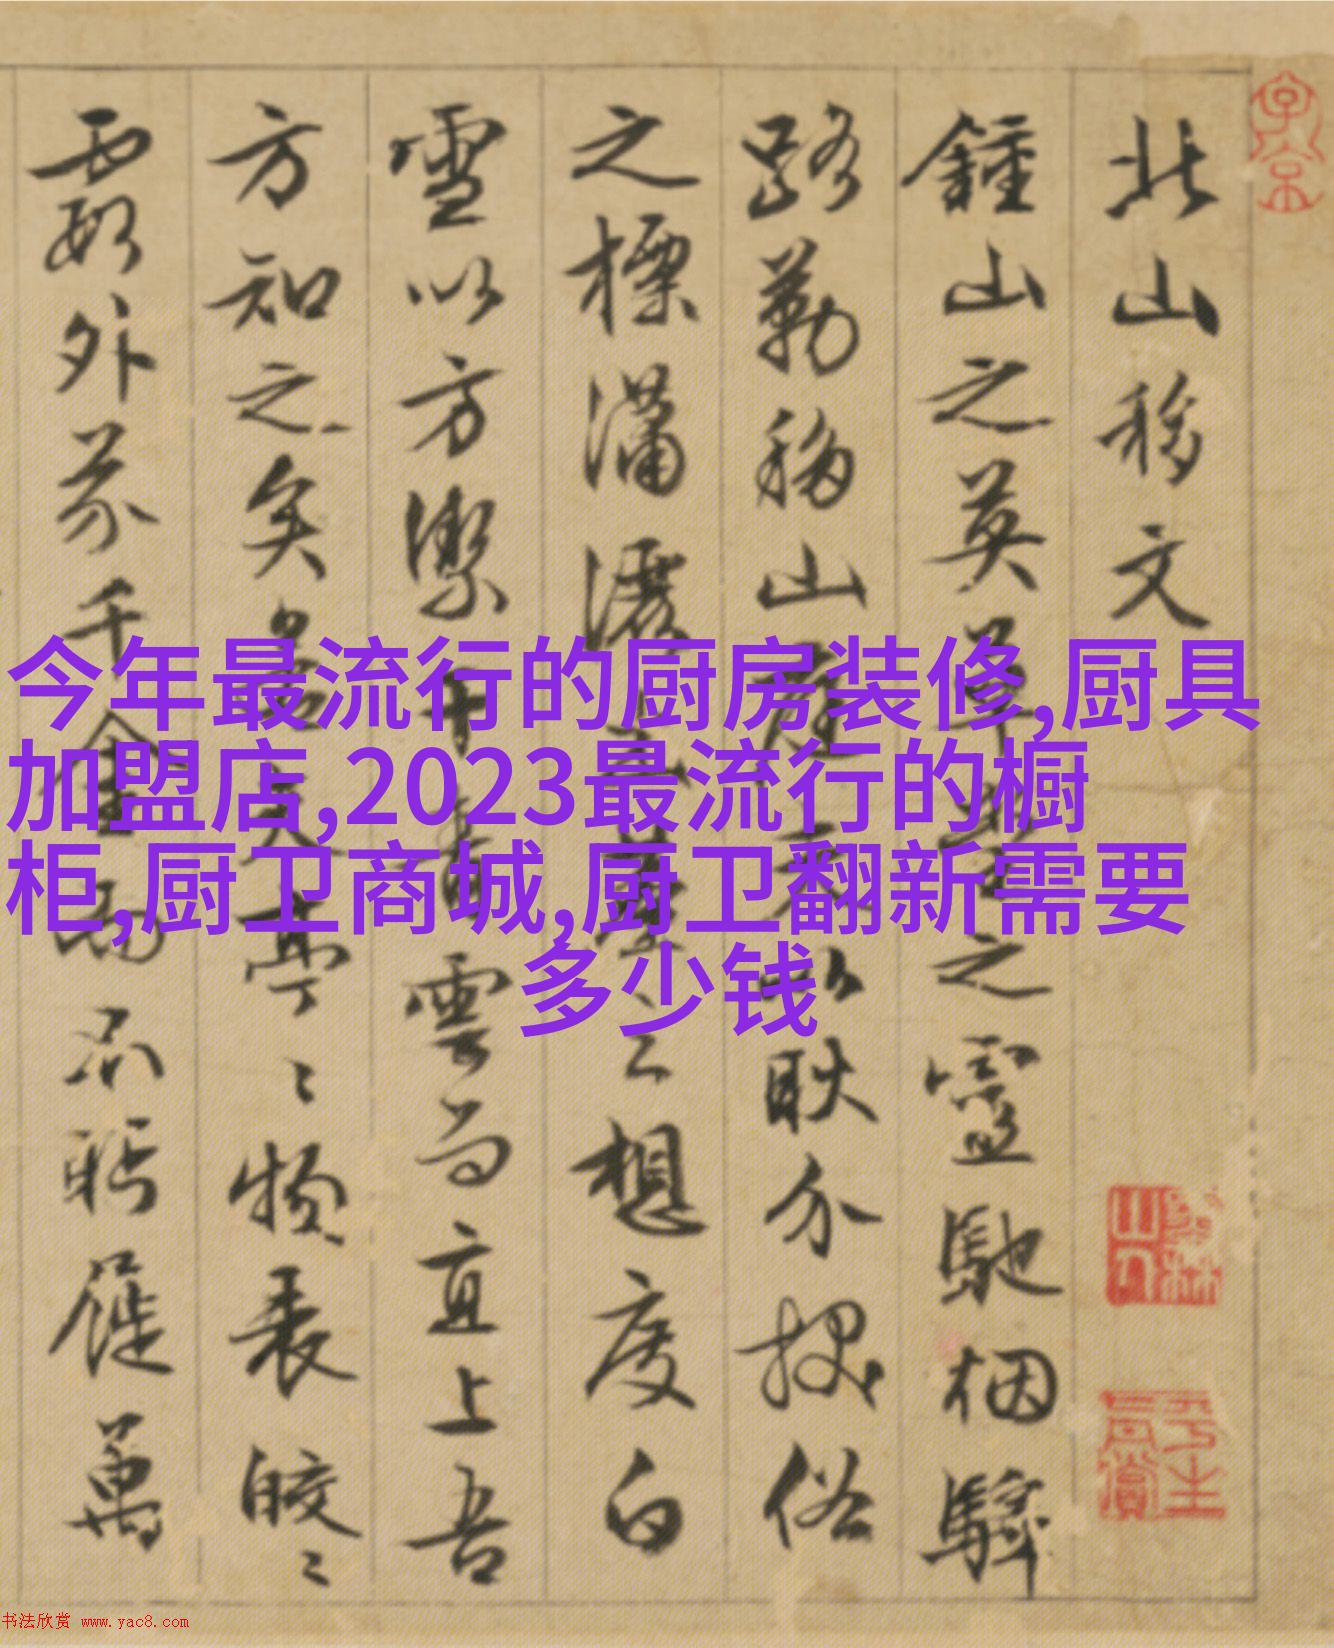 北山移文
鍾山之英草堂之靈馳烟驛
路勒移山庭以耿介拔俗
之標瀟灑出塵之想度白
雪以方潔干青雲而直上吾
方知之矣若亭〻物表皎〻
霞外芥千金而不盼屣萬
今年最流行的厨房装修,厨具
加盟店,2023最流行的橱
柜,厨卫商城,厨卫翻新需要
多少钱
书法欣赏 www.yac8.com